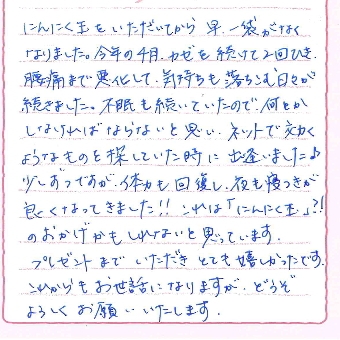 にんにく玉をいただいてから早一袋がなく
なりました。今年の4月、カゼを続けて2回ひき、
腰痛まで悪化して、気持ちも落ちこむ日々が
続きました。不眠も続いていたので、何とか
しなければならないと思い、ネットで効く
ようなものを探していた時に出逢いました♪
少しずつですが、体力も回復し、夜も寝つきが
良くなってきました!! これは「にんにく玉」?!
のおかげかもしれないと思っています。
プレゼントまでいただきとても嬉しかったです。
これからもお世話になりますが、どうぞ
よろしくお願いいたします。